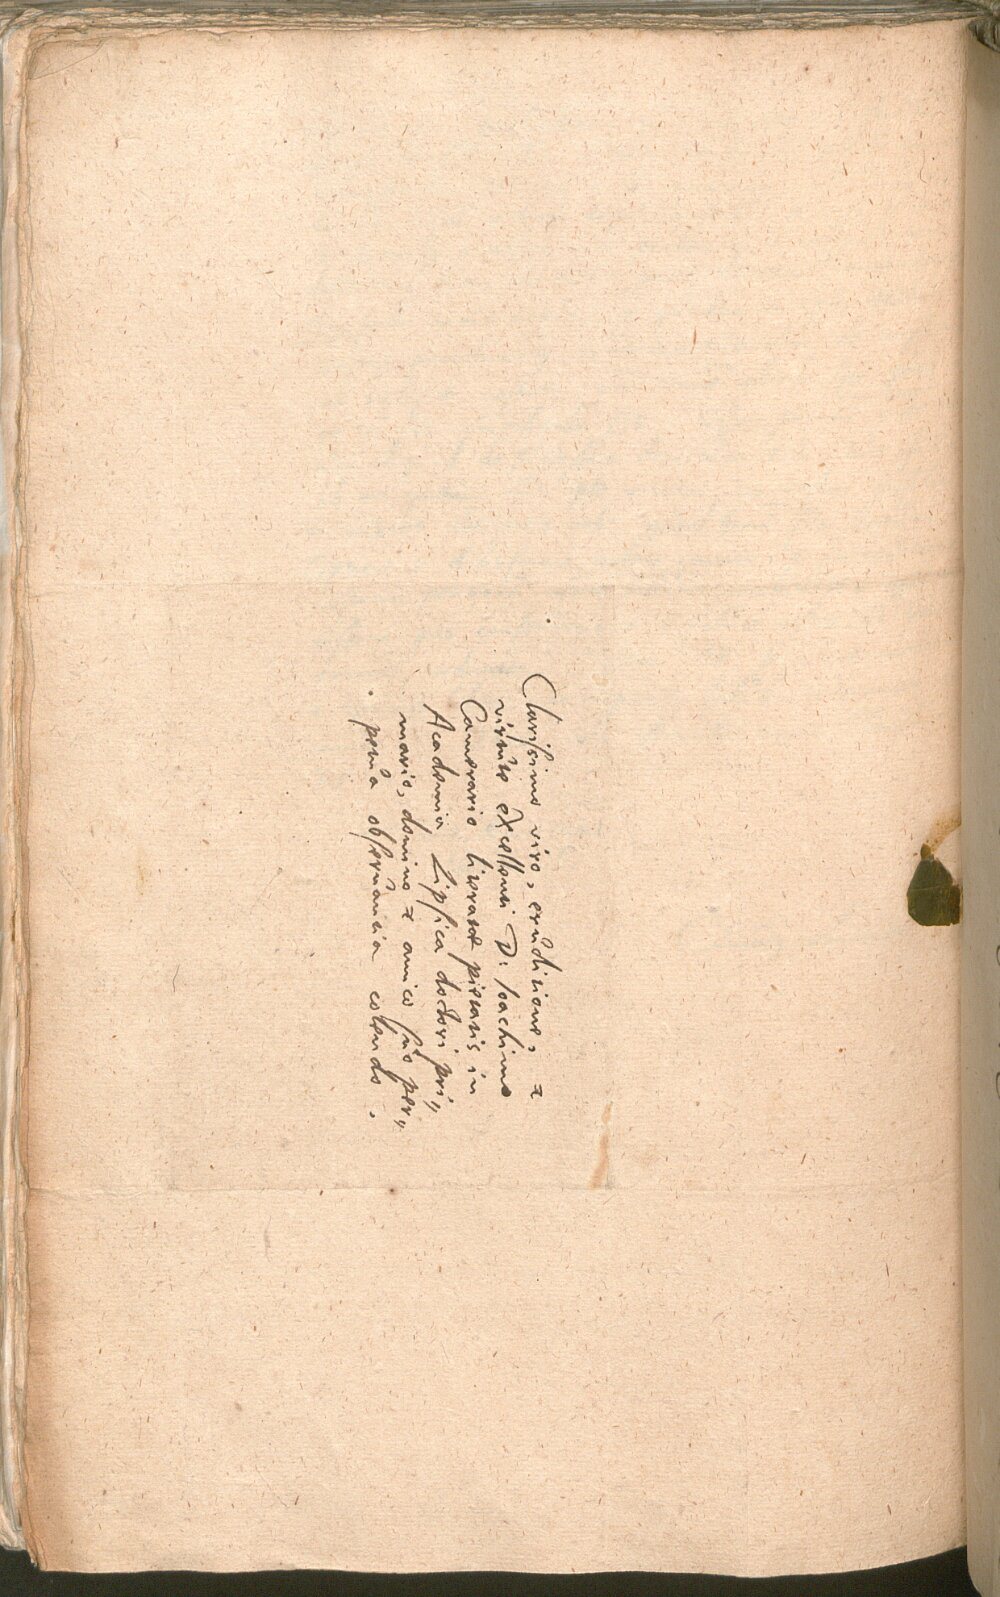 Clarissimo viro, eruditione, &
virtute excellenti D: Joachimo
Camerario literarū pietatis in
Academia Lipsica doctori pri„
mario, domino & amico suo per„
petua obseruantia colendo.